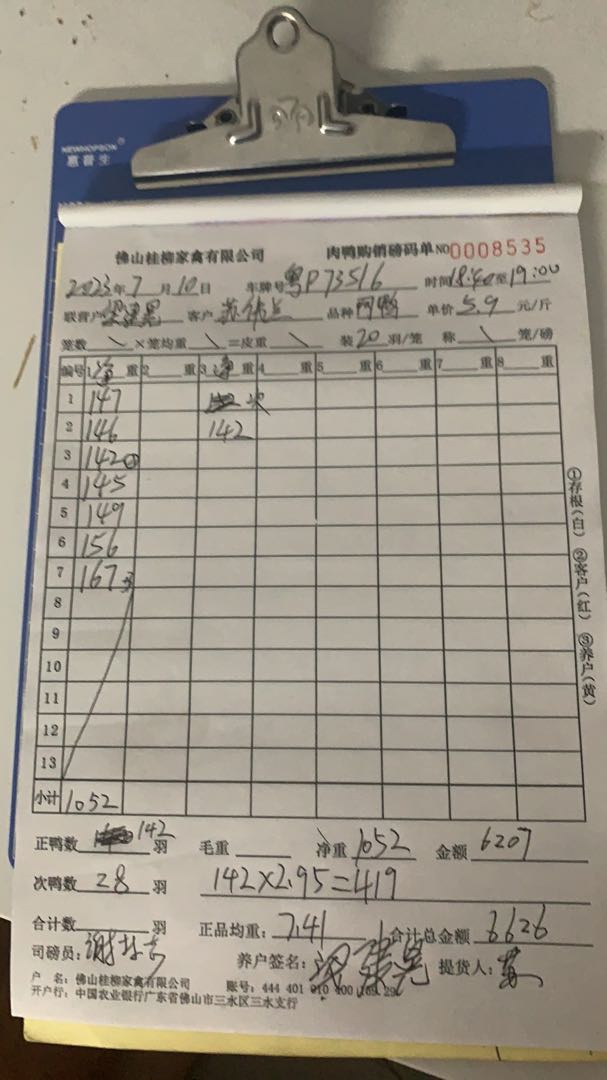 NEWHOPSON®
惠普生
佛山桂柳家禽有限公司 肉鸭购销磅码单 NO 0008535
2023年 7 月 10 日 车牌号 粤P73516 时间 18:40至19:00
联营户 客户 品种 单价 5.9 元/斤
笼数 \ ×笼均重 \ =皮重 \ 装 20 羽/笼 称 \ 笼/磅
编号 1 净 重 2 重 3 净 重 4 重 5 重 6 重 7 重 8 重
1 147 次
2 146 142
3 142
4 145
5 149
6 156
7 167
8
9
10
11
12
13
小计 1052
①存根(白) ②客户(红) ③养户(黄)
正鸭数 142 羽 毛重 净重 1052 金额 6207
次鸭数 28 羽 142×2.95=419
合计数 羽 正品均重: 7.41 合计总金额 6626
司磅员: 养户签名: 提货人:
户 名: 佛山桂柳家禽有限公司 账号: 444 401 010 400 169 29
开户行: 中国农业银行广东省佛山市三水区三水支行